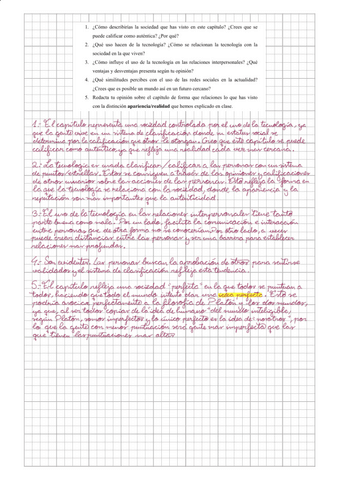 1. ¿Cómo describirías la sociedad que has visto en este capítulo? ¿Crees que se
puede calificar como auténtica? ¿Por qué?
2. ¿Qué uso hacen de la tecnología? ¿Cómo se relacionan la tecnología con la
sociedad en la que viven?
3. ¿Cómo influye el uso de la tecnología en las relaciones interpersonales? ¿Qué
ventajas y desventajas presenta según tu opinión?
4. ¿Qué similitudes percibes con el uso de las redes sociales en la actualidad?
¿Crees que es posible un mundo así en un futuro cercano?
5. Redacta tu opinión sobre el capítulo de forma que relaciones lo que has visto
con la distinción apariencia/realidad que hemos explicado en clase.
1.- El capítulo representa una sociedad controlada por el uso de la tecnología, ya
que la gente vive en un sistema de clasificación donde su estatus social se
determina por la calificación que otros le otorgan. Creo que este capítulo se puede
calificar como auténtico, ya que refleja una realidad cada vez más cercana.
2.- La tecnología es usada clasificar/calificar a las personas con un sistema
de puntos/estrellas. Estos se consiguen a través de las opiniones y calificaciones
de otros usuarios sobre las acciones de las personas. Esto refleja la forma en
la que la tecnología se relaciona con la sociedad, donde la apariencia y la
reputación son más importantes que la autenticidad.
3.- El uso de la tecnología en las relaciones interpersonales tiene tanto
parte buena como mala. Por un lado, facilita la comunicación e interacción
entre personas que de otra forma no se conocerían. Por otro lado, a veces
puede crear distancias entre las personas y ser una barrera para establecer
relaciones más profundas.
4.- Son evidentes. Las personas buscan la aprobación de otros para sentirse
validados y el sistema de clasificación refleja esta tendencia.
5.- El capítulo refleja una sociedad "perfecta" en la que todos se puntúan a
todos, haciendo que todo el mundo intente dar una idea perfecta. Esto se
podría asociar perfectamente a la filosofía de Platón y los dos mundos,
ya que, al ser todos copias de la idea de humano "del mundo inteligible,
según Platón, somos imperfectos y lo único perfecto es la idea de "nosotros", por
lo que la gente con menor puntuación será gente más imperfecta que las
que tienen las puntuaciones más altas.